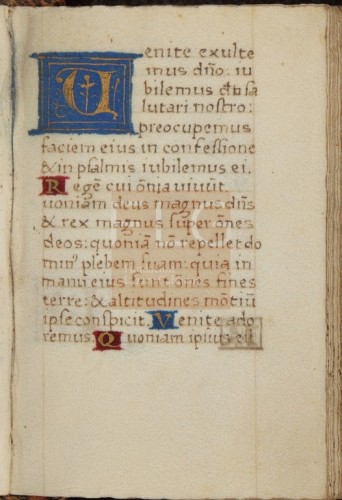 Venite exulte
mus dño. iu
bilemus deo sa
lutari nostro:
preocupemus
faciem eius in confessione
& in psalmis iubilemus ei.
Regē cui oñia viuūt.
uoniam deus magnus dñs
& rex magnus super oñes
deos: quoniā nō repellet do
minꝰ plebem suam: quia in
manu eius sunt oñes fines
terre: & altitudines mōtiū
ipse conspicit. Venite ado
remus. Quoniam ipsius est